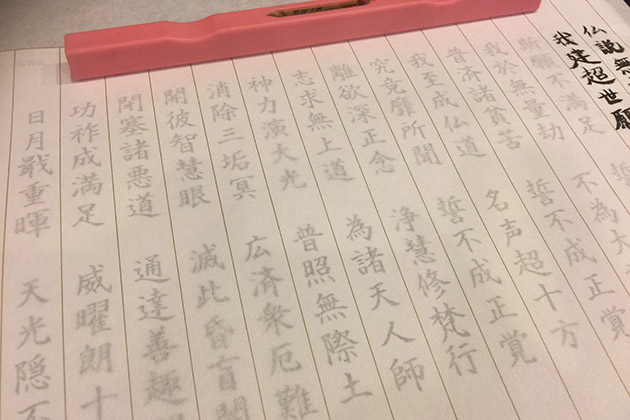 仏説無
我建超世願
斯願不満足 誓
我於無量劫 不為大
普済諸貧苦 誓不成正覚
我至成仏道 名声超十方
究竟靡所聞 誓不成正覚
離欲深正念 浄慧修梵行
志求無上道 為諸天人師
神力演大光 普照無際土
消除三垢冥 広済衆厄難
開彼智慧眼 滅此昏盲闇
閉塞諸悪道 通達善趣
功祚成満足 威曜朗十
日月戢重暉 天光隠不